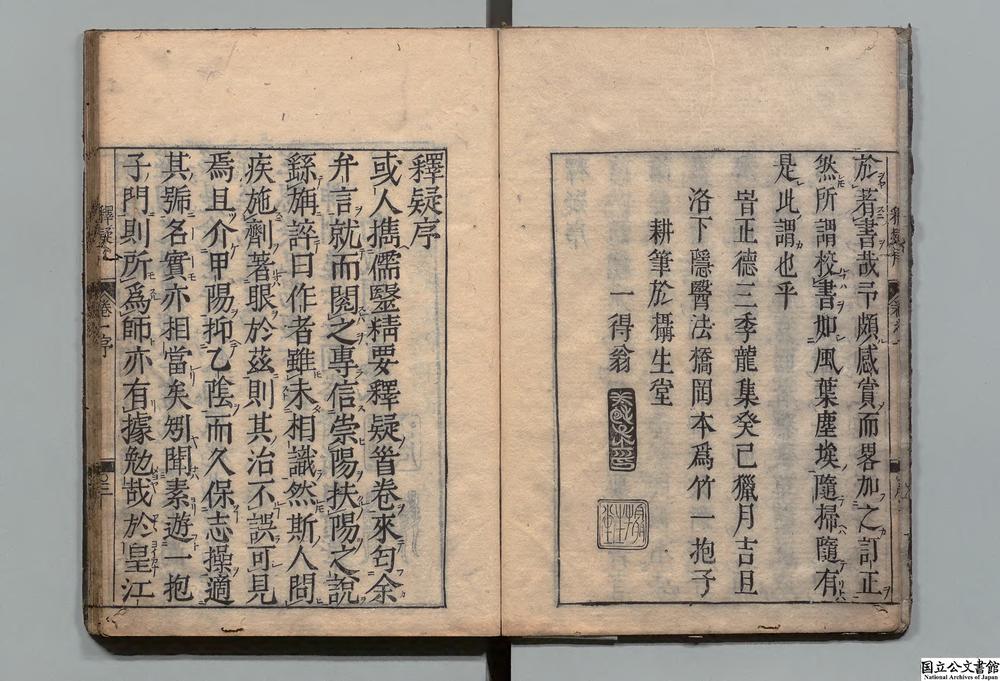 於著書哉予頗感賞而畧加之訂正
然所謂校書如風葉塵埃隨掃隨有
是此謂也乎
旹正德三季龍集癸巳獵月吉旦
洛下隱醫法橋岡本爲竹一抱子
耕筆於攝生堂
一得翁
釋疑序
或人携儒醫精要釋疑首卷來匄余
弁言就而閱之專信崇陽扶陽之說
繇旃誶曰作者雖未相識然斯人問
疾施劑著眼於茲則其治不誤可見
焉且介甲陽抑乙陰而久保志操適
其號名實亦相當矣矧聞素遊一抱
子門則所爲師亦有據勉哉於皇江
卷一序
国立公文書館
National Archives of Japan